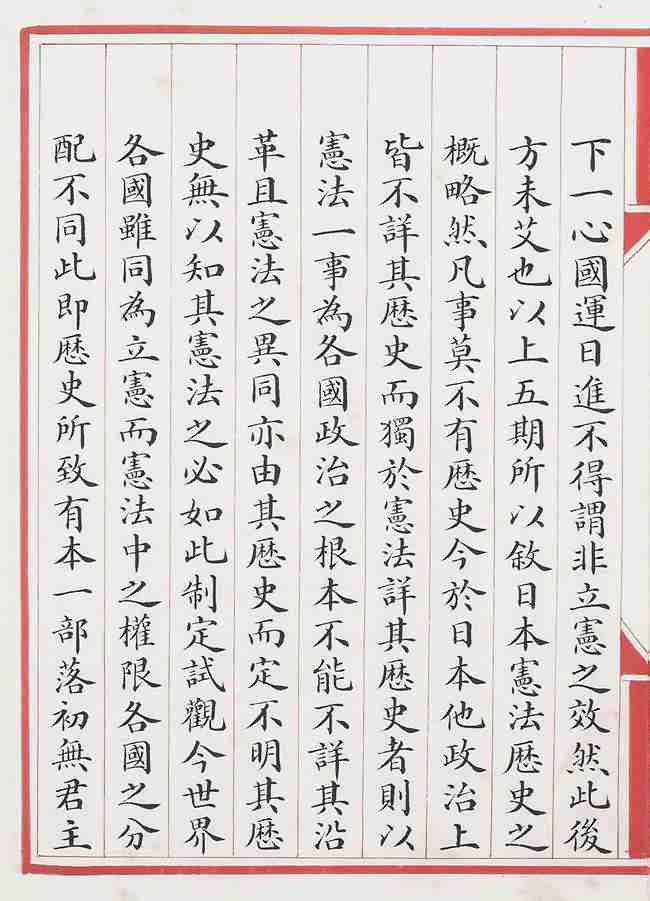 下一心國運日進不得謂非立憲之效然此後
方未艾也以上五期所以敘日本憲法歷史之
概略然凡事莫不有歷史今於日本他政治上
皆不詳其歷史而獨於憲法詳其歷史者則以
憲法一事為各國政治之根本不能不詳其沿
革且憲法之異同亦由其歷史而定不明其歷
史無以知其憲法之必如此制定試觀今世界
各國雖同為立憲而憲法中之權限各國之分
配不同此即歷史所致有本一部落初無君主